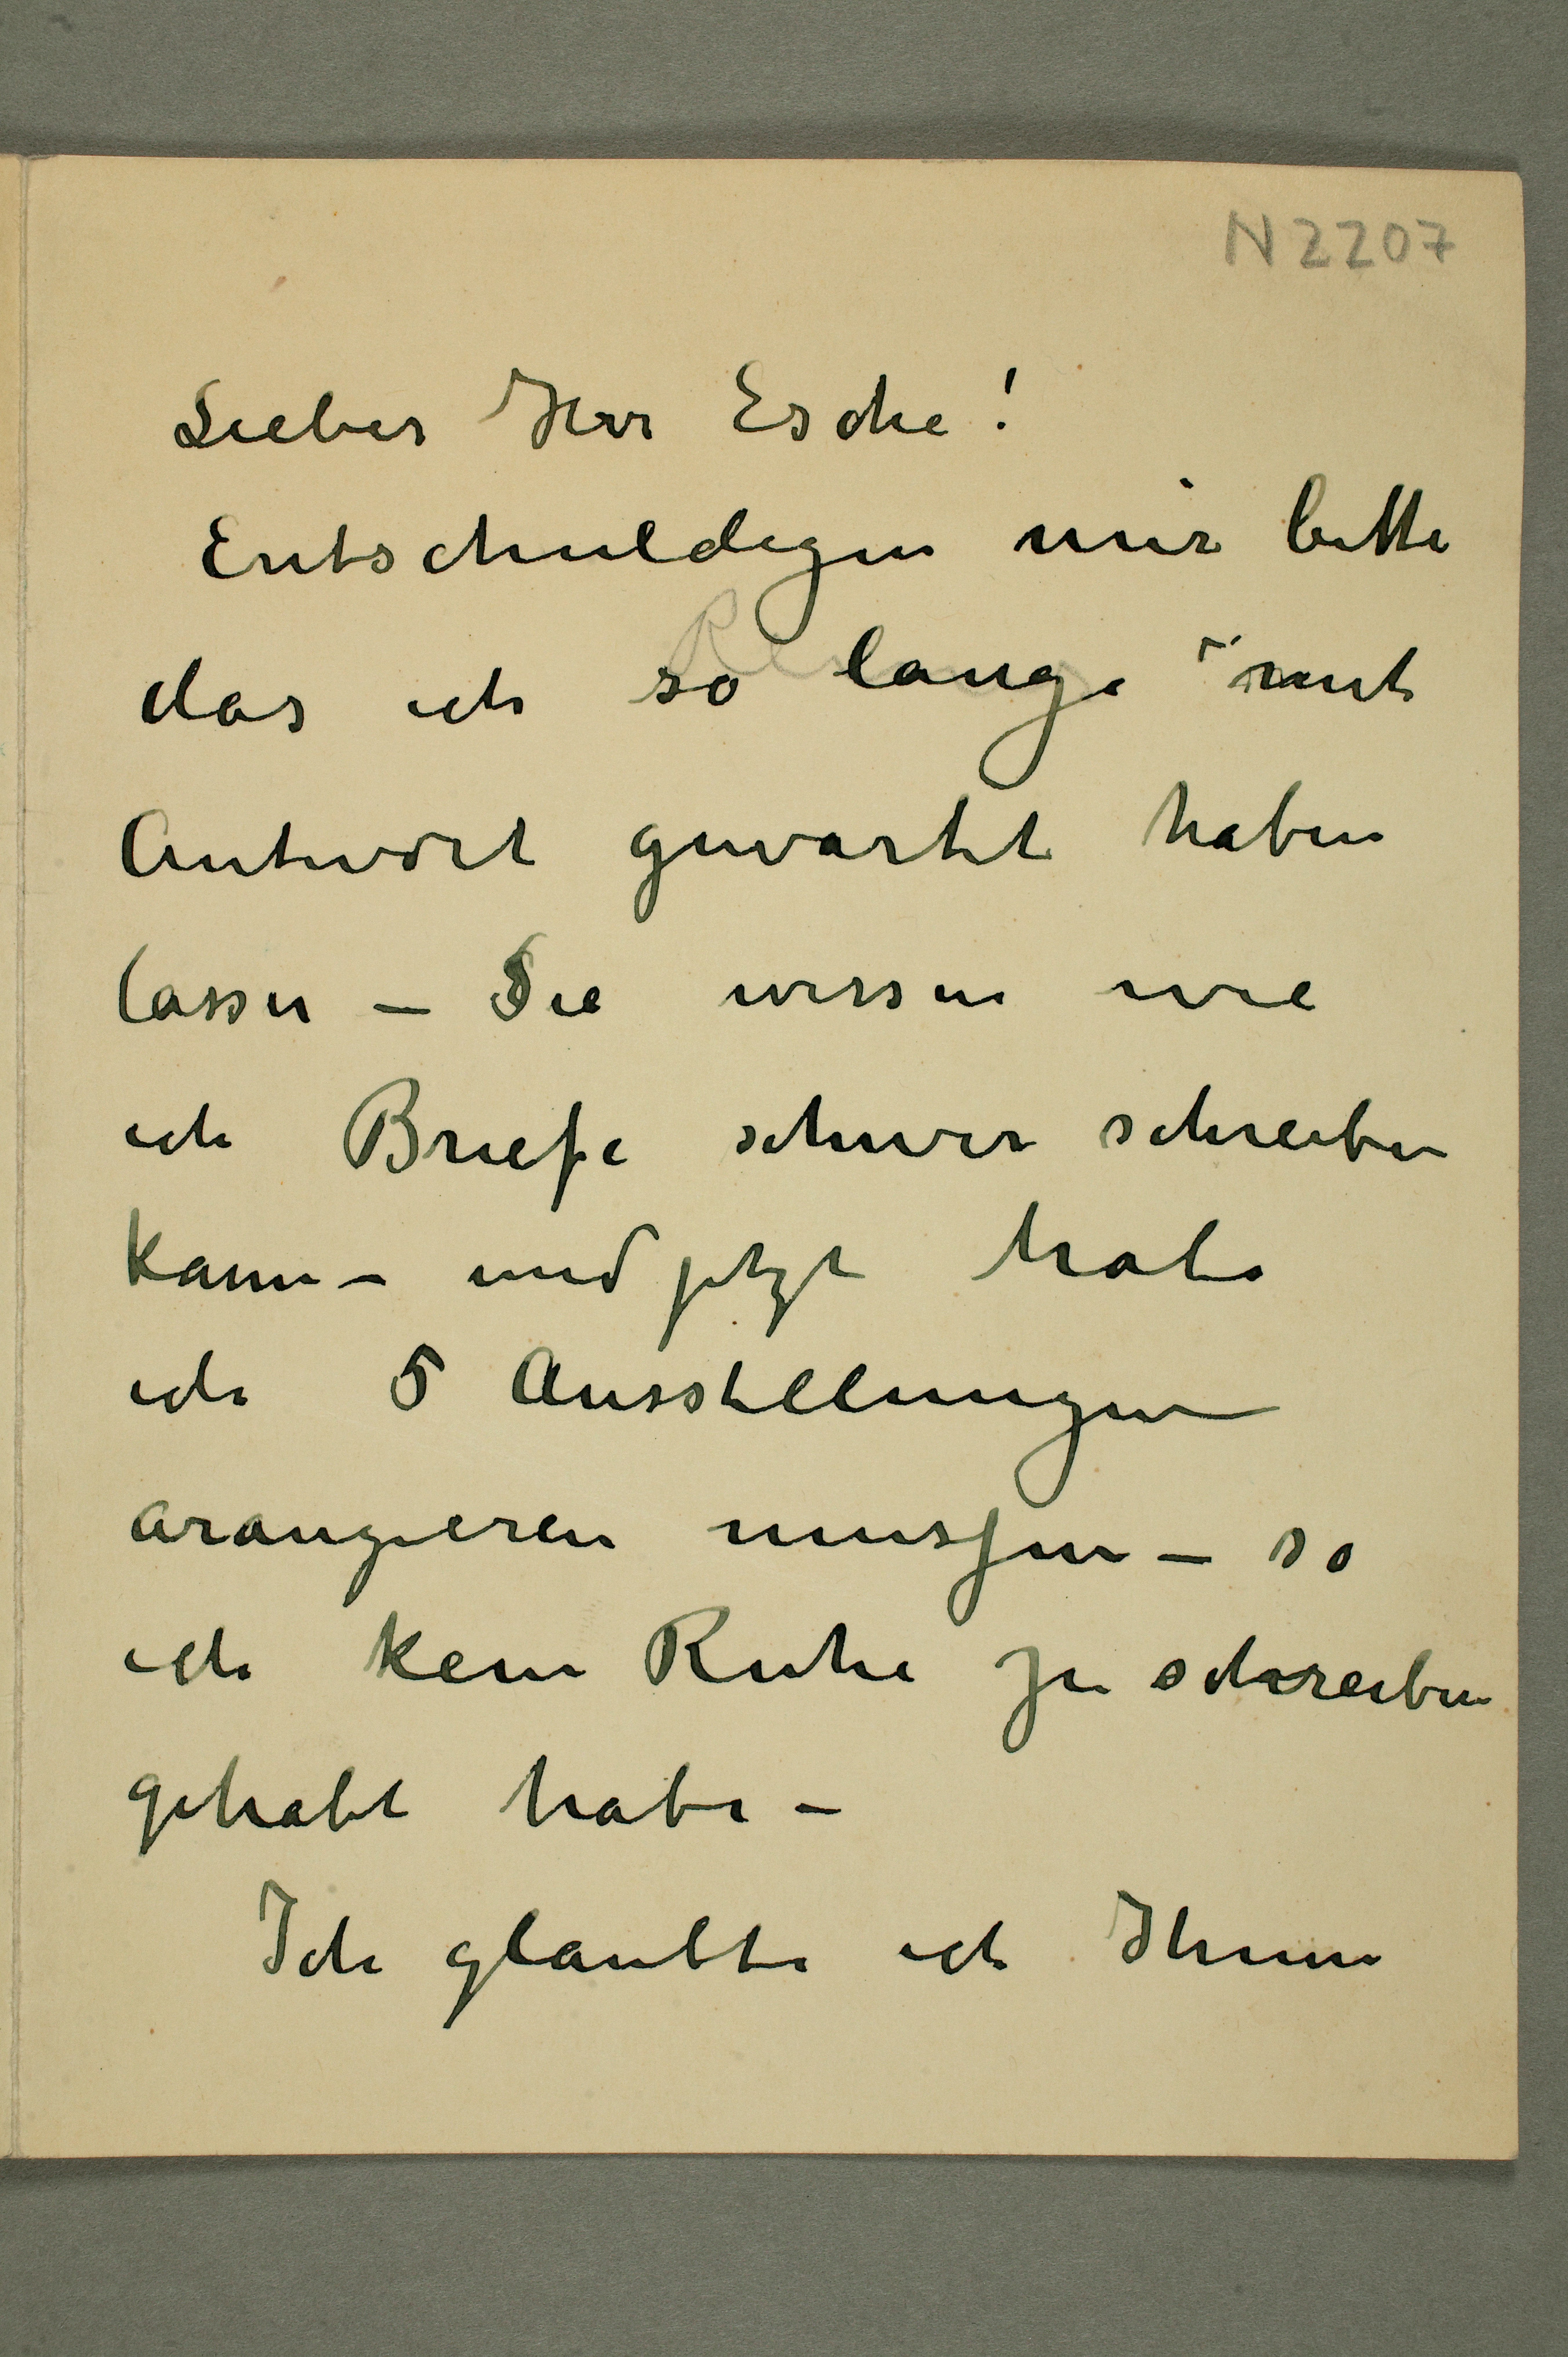 N 2207
Lieber Herr Esche!
Entschuldigen mir bitte
das ich so lange mit
Antwort gewartet haben
lassen – Sie wissen wie
ich Briefe schwer schreiben
kann – und jetzt habe
ich 5 Ausstellungen
arangieren mussen – so
ich kein Ruhe zu schreiben
gehabt habe –
Ich glaubte ich Ihnen